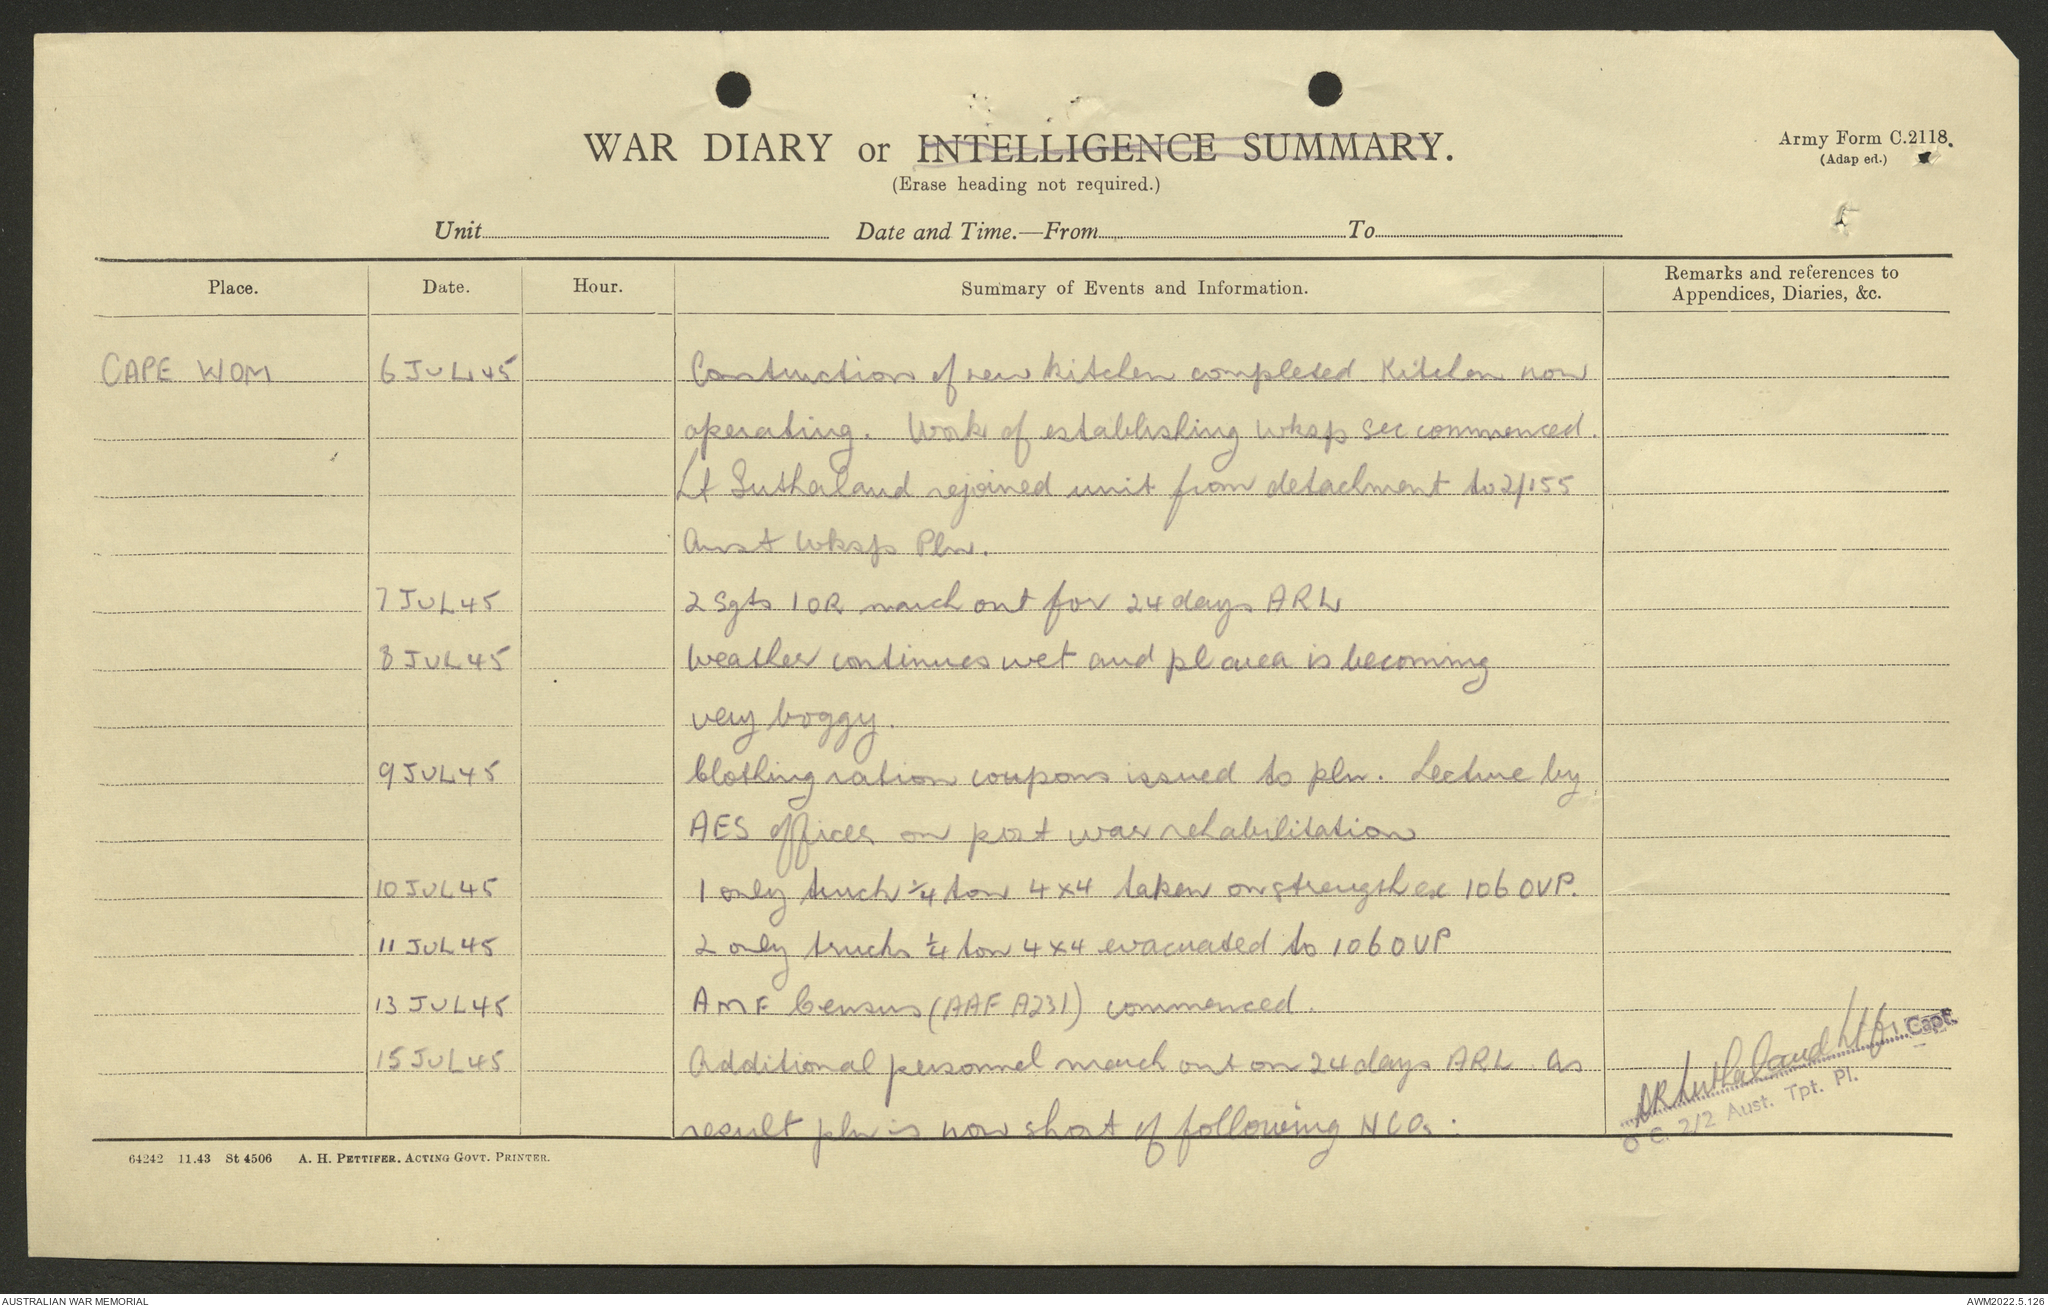 WAR DIARY or INTELLIGENCE SUMMARY.
(Erase heading not required.)
Army Form C.2118.
(Adap ed.)
Unit Date and Time.—From To
Place. Date. Hour. Summary of Events and Information. Remarks and references to Appendices, Diaries, &c.
CAPE WOM 6 JUL 45 Construction of new kitchen completed Kitchen now
operating. Work of establishing Wksp Sec commenced.
Lt Sutherland rejoined unit from detachment to 2/155
Aust Wksps Pln.
7 JUL 45 2 Sgts 1 OR march out for 24 days ARL
8 JUL 45 Weather continues wet and pl area is becoming
very boggy.
9 JUL 45 Clothing ration coupons issued to pln. Lecture by
AES officer on post war rehabilitation
10 JUL 45 1 only truck 1/4 ton 4x4 taken on strength ex 106 OVP.
11 JUL 45 2 only trucks 1/4 ton 4x4 evacuated to 106 OVP
13 JUL 45 AMF Census (AAF A231) commenced.
15 JUL 45 Additional personnel march out on 24 days ARL. As
result pln is now short of following NCOs :
Sutherland Lt Capt.
O C. 2/2 Aust. Tpt. Pl.
64242 11.43 St 4506 A. H. PETTIFER. ACTING GOVT. PRINTER.
AUSTRALIAN WAR MEMORIAL AWM2022.5.126